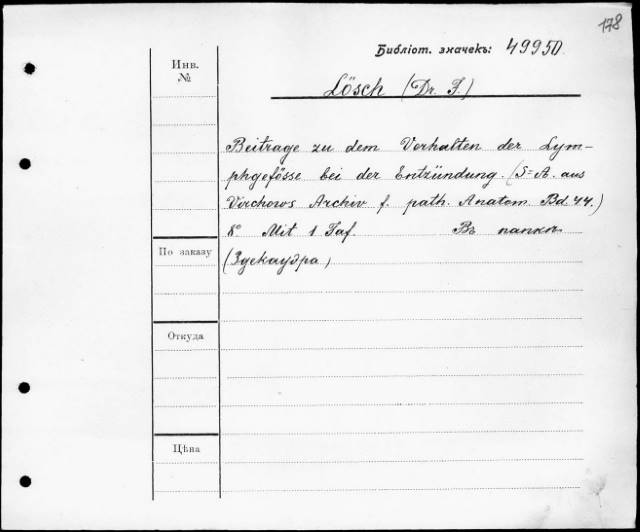 178
Библіот. значекъ: 49950
Инв.
№
Lösch (Dr. F.)
Beitrage zu dem Verhalten der Lym-
phgefösse bei der Entzündung. (S=A. aus
Virchows Archiv f. path. Anatom. Bd. 44.)
8° Mit 1 Taf. Въ папкѣ
По заказу
(Здекауэра)
Откуда
Цѣна